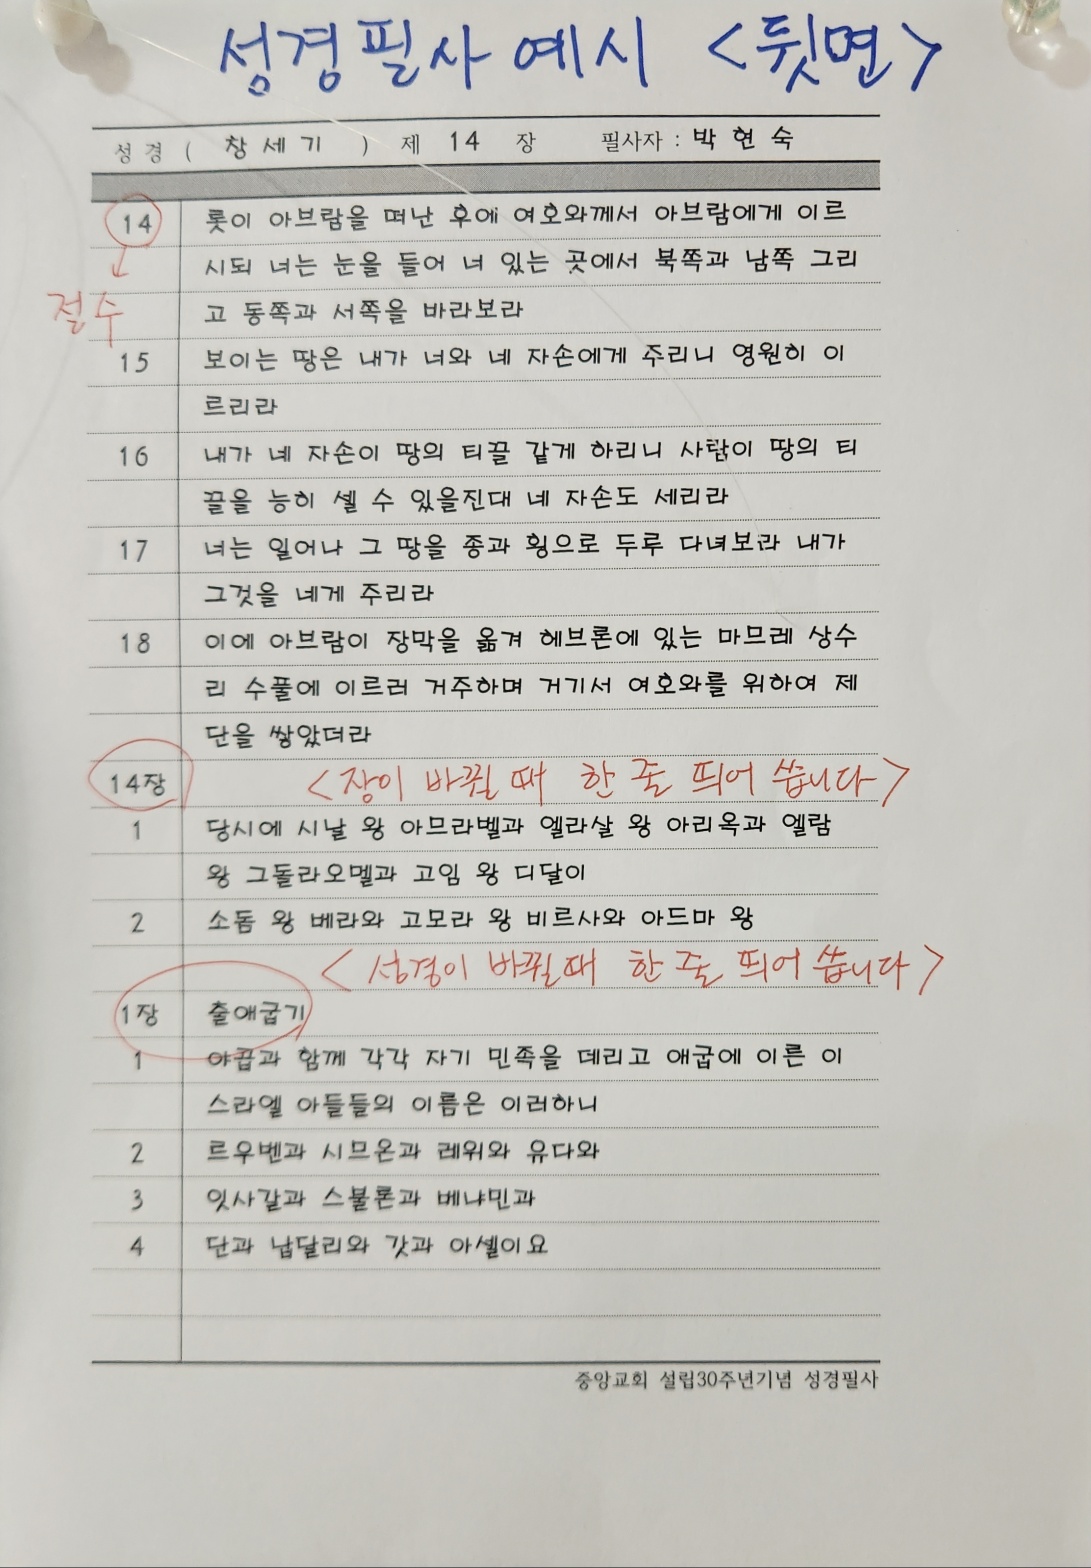 성경필사 예시 <뒷면>
성 경 ( 창 세 기 ) 제 14 장 필사자 : 박 현 숙
14 롯이 아브람을 떠난 후에 여호와께서 아브람에게 이르
시되 너는 눈을 들어 너 있는 곳에서 북쪽과 남쪽 그리
절수
고 동쪽과 서쪽을 바라보라
15 보이는 땅은 내가 너와 네 자손에게 주리니 영원히 이
르리라
16 내가 네 자손이 땅의 티끌 같게 하리니 사람이 땅의 티
끌을 능히 셀 수 있을진대 네 자손도 세리라
17 너는 일어나 그 땅을 종과 횡으로 두루 다녀보라 내가
그것을 네게 주리라
18 이에 아브람이 장막을 옮겨 헤브론에 있는 마므레 상수
리 수풀에 이르러 거주하며 거기서 여호와를 위하여 제
단을 쌓았더라
14장 <장이 바뀔 때 한 줄 띄어 씁니다>
1 당시에 시날 왕 아므라벨과 엘라살 왕 아리옥과 엘람
왕 그돌라오멜과 고임 왕 디달이
2 소돔 왕 베라와 고모라 왕 비르사와 아드마 왕
<성경이 바뀔때 한 줄 띄어 씁니다>
1장 출애굽기
1 야곱과 함께 각각 자기 민족을 데리고 애굽에 이른 이
스라엘 아들들의 이름은 이러하니
2 르우벤과 시므온과 레위와 유다와
3 잇사갈과 스불론과 베냐민과
4 단과 납달리와 갓과 아셀이요
중앙교회 설립30주년기념 성경필사